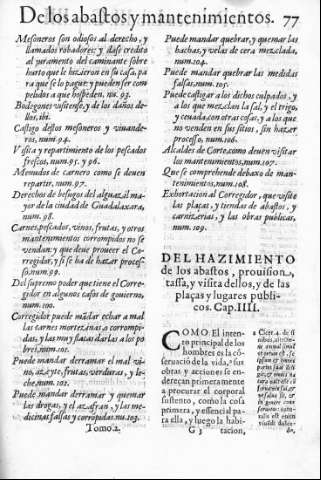 De los abastos y mantenimientos. 77
Mesoneros son odiosos al derecho, y
llamados robadores: y dase credito
al juramento del caminante sobre
hurto que le hizieron en su casa, pa
ra que se lo pague: y pueden ser com
pelidos a que hospeden, nu. 93.
Bodegones visitense, y de los daños de-
llos, ibi.
Castigo destos mesoneros y vinande-
ros, num. 94.
Visita y repartimiento de los pescados
frescos, num. 95. y 96.
Menudos de carnero como se deuen
repartir, num. 97.
Derechos de besugos del alguazil ma-
yor de la ciudad de Guadalaxara,
num. 98.
Carnes, pescados, vinos, frutas, y otros
mantenimientos corrompidos no se
vendan: y que deue proueer el Co-
rregidor, y si se ha de hazer proces-
so, num. 99.
Del supremo poder que tiene el Corre-
gidor en algunos casos de gouierno,
num. 100.
Corregidor puede mãdar echar a mal
las carnes mortezinas, o corrompi-
das, y las muy flacas darlas a los po
bres, num. 101.
Puede mandar derramar el mal vi-
no, azeyte, frutas, verduras, y le-
che, num. 102.
Puede mandar derramar y quemar
las drogas, y el azafran, y las me-
dicinas falsas y corrõpidas, nu. 103.
Tomo. 2.
Puede mandar quebrar, y quemar las
hachas, y velas de cera mezclada,
num. 104.
Puede mandar quebrar las medidas
falsas, num. 105.
Puede castigar a los dichos culpados, y
a los que mezclan la sal, y el trigo,
y ceuada, con otras cosas, y a los que
no venden en sus sitios, sin hazer
processo, num. 106.
Alcaldes de Corte, como deuen visitar
los mantenimientos, num. 107.
Que se comprehende debaxo de man-
tenimientos, num. 108.
Exhortacion al Corregidor, que visite
las plaças, y tiendas de abastos, y
carnizerias, y las obras publicas,
num. 109.
DEL HAZIMIENTO
de los abastos, prouision,
tassa, y visita dellos, y de las
plaças y lugares publi-
cos. Cap. IIII.
COMO El inten-
to principal de los
hombres es la cõ-
seruació de la vida, a sus
obras y acciones se en-
dereçan primeramente
a procurar el corporal
sustento, como la cosa
primera, y essencial pa
ra ella, y luego la habi-
G 3 tacion,
a Cicer. 4. de fi
nibus,